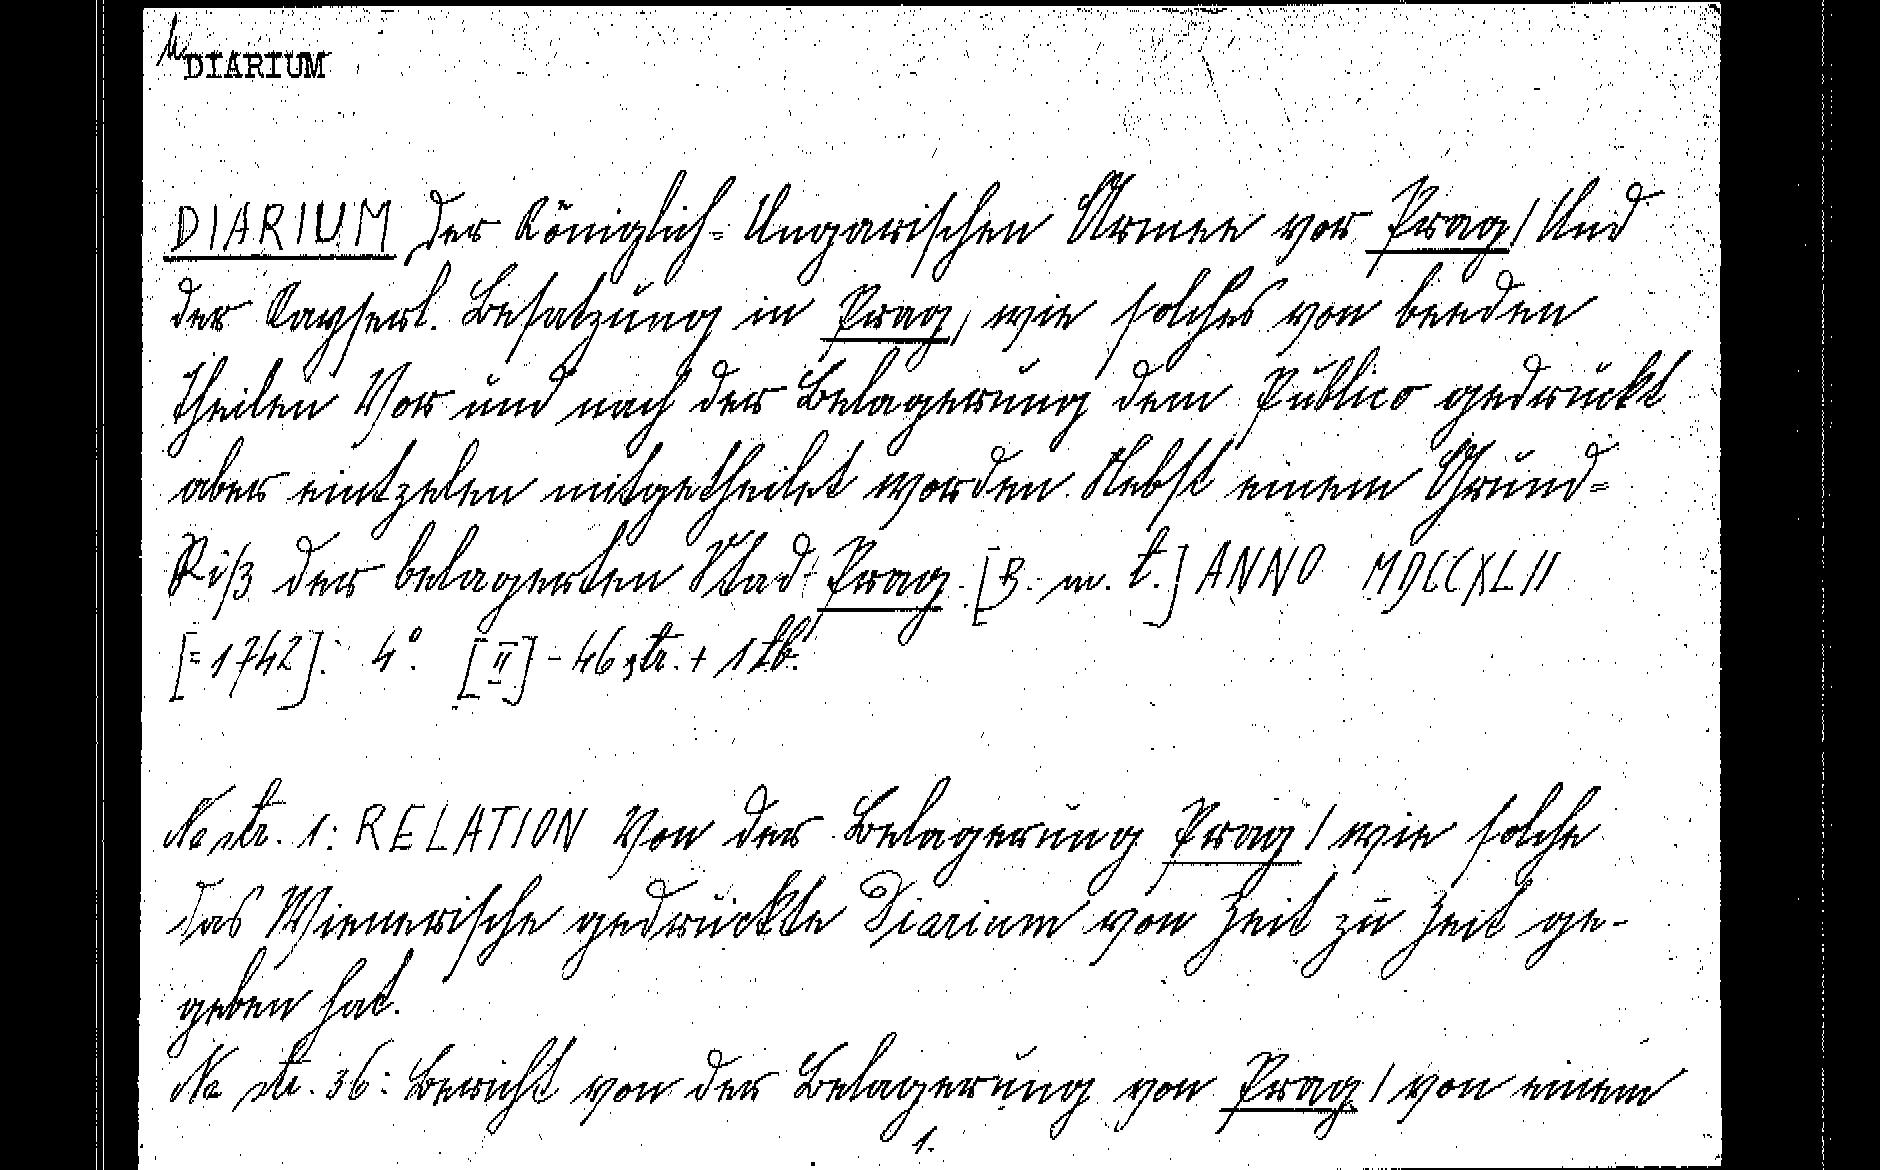 DIARIUM
DIARIUM der Königlich= Ungarischen Armee vor Prag / Und
der Kayserl. Besatzung in Prag, wie solches von beeden
theilen Vor und nach der Belagerung dem Publico gedruckt
aber eintzelen mitgetheilet worden. Nebst einem Grund=
Riß der belagerten Stad Prag. [B. m. t.] ANNO MDCCXLII
[=1742]. 4°. [II] - 46 str. + 1 tb.
Na str. 1: RELATION Von der Belagerung Prag / wie solche
das Wienerische gedruckte Diarium von Zeit zu Zeit ge-
geben hat.
Na str. 36: Bericht von der Belagerung von Prag / von einem
1.